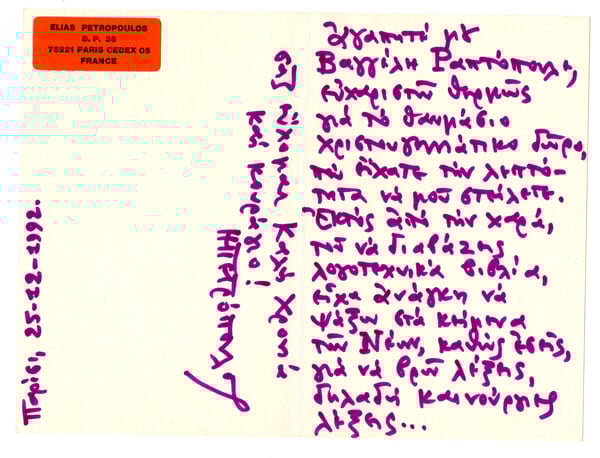 ELIAS PETROPOULOS
B. P. 36
75221 PARIS CEDEX 05
FRANCE
Ἀγαπητέ μου
Βαγγέλη Ραπτόπουλε,
εὐχαριστῶ θερμῶς
γιὰ τὸ θαυμάσιο
χριστουγεννιάτικο δῶρο,
ποὺ εἴχατε τὴν λεπτό-
τητα νὰ μοῦ στείλετε.
Ἐκτὸς ἀπὸ τὴν χαρά,
τοῦ νὰ διαβάζῃς
λογοτεχνικὰ βιβλία,
εἶχα ἀνάγκη νὰ
ψάξω στὰ κείμενα
τῶν Νέων, καθὼς ἐσεῖς,
γιὰ νὰ βρῶ λέξεις,
δηλαδὴ καινούργιες
λέξεις...
Σᾶς εὔχομαι Καλὴ Χρονιὰ
καὶ κουράγιο!
ΗΠετρόπουλος
Παρίσι, 25-12-1992.